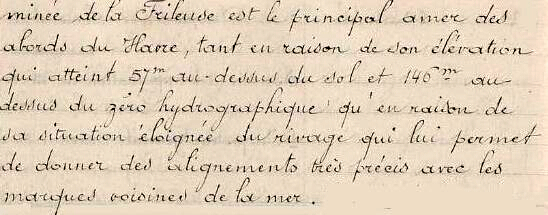 minée de la Frileuse est le principal amer des
abords du Havre, tant en raison de son élévation
qui atteint 57m au-dessus du sol et 146m au
dessus du zéro hydrographique qu'en raison de
sa situation éloignée du rivage qui lui permet
de donner des alignements très précis avec les
marques voisines de la mer.